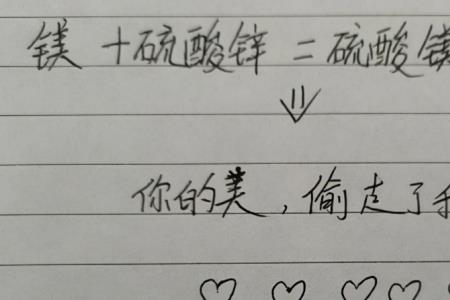 镁+硫酸锌=硫酸镁
你的美,偷走了